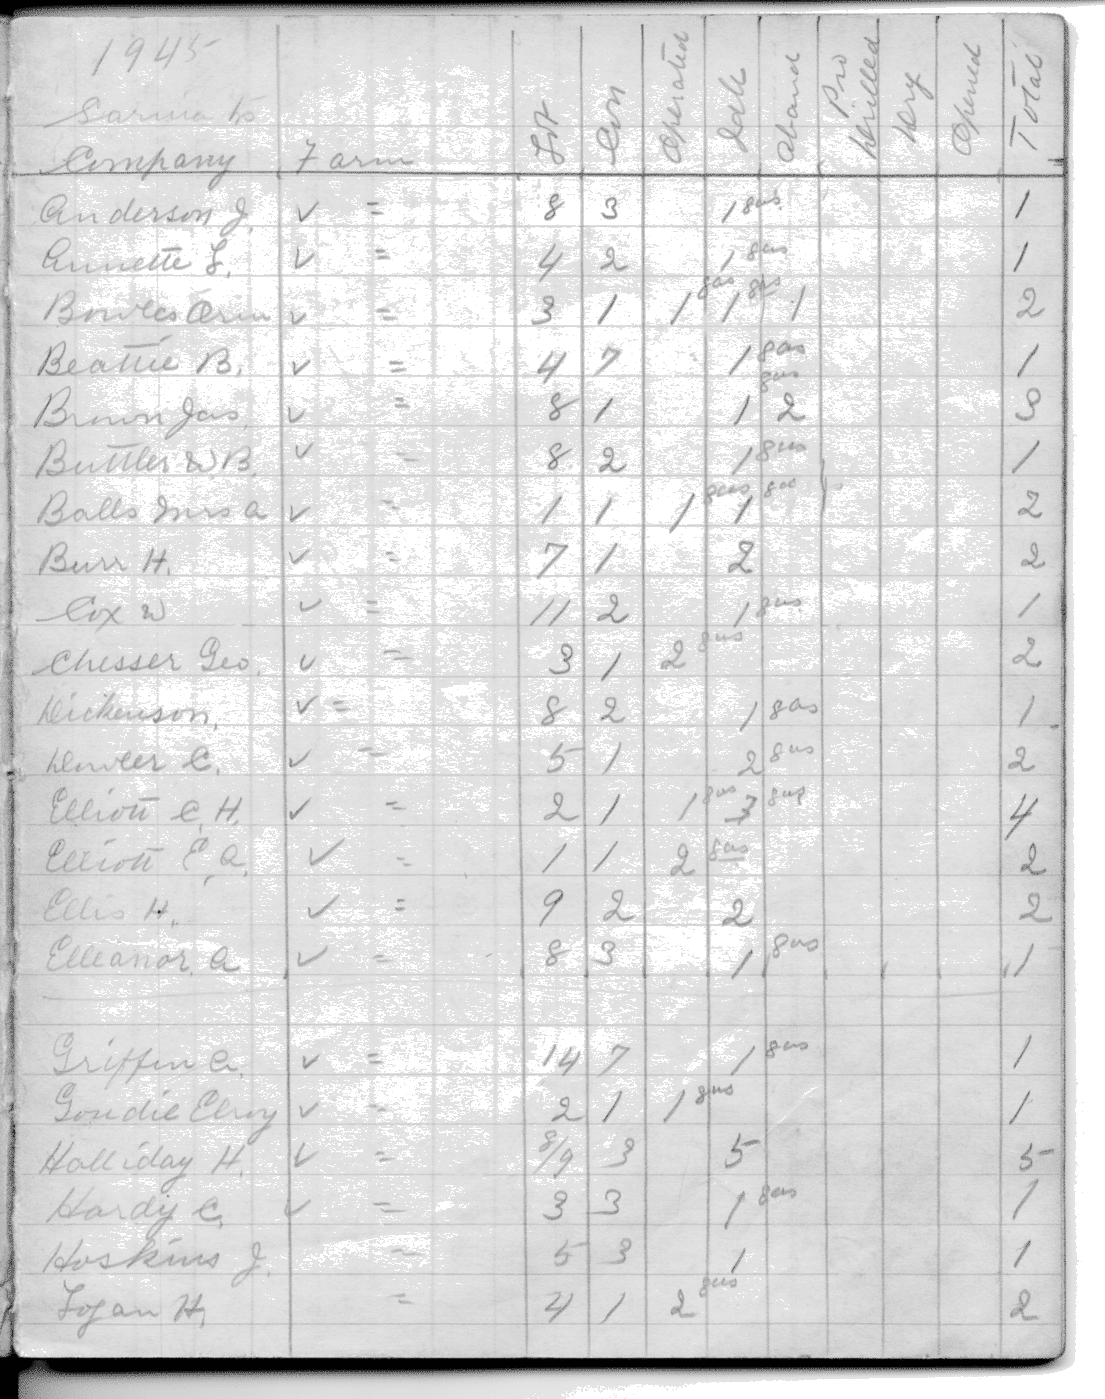 1945
Sarnia
Company Farm Lot Con Operated Idle Aband Pro Drilled Dry Opened Total
Anderson J. ✓ = 8 3 1 gas 1
Annette L. ✓ = 4 2 1 gas 1
Bowles Orin ✓ = 3 1 1 gas 1 gas 1 2
Beattie B. ✓ = 4 7 1 gas 1
Brown Jas. ✓ = 8 1 1 2 gas 3
Buttler W.B. ✓ = 8 2 1 gas 1
Balls Mrs A ✓ = 1 1 1 gas 1 gas 2
Burr H. ✓ = 7 1 2 2
Cox W ✓ = 11 2 1 gas 1
Chesser Geo. ✓ = 3 1 2 gas 2
Dickenson, ✓ = 8 2 1 gas 1
Dowler C. ✓ = 5 1 2 gas 2
Elliott C.H. ✓ = 2 1 1 gas 3 gas 4
Elliott E.A. ✓ = 1 1 2 gas 2
Ellis H. ✓ = 9 2 2 2
Elleanor. A ✓ = 8 3 1 gas 1
Griffin A. ✓ = 14 7 1 gas 1
Goudie Elroy ✓ = 2 1 1 gas 1
Halliday H. ✓ = 8/9 3 5 5
Hardy C. ✓ = 3 3 1 gas 1
Hoskins J. = 5 3 1 1
Logan H. = 4 1 2 gas 2